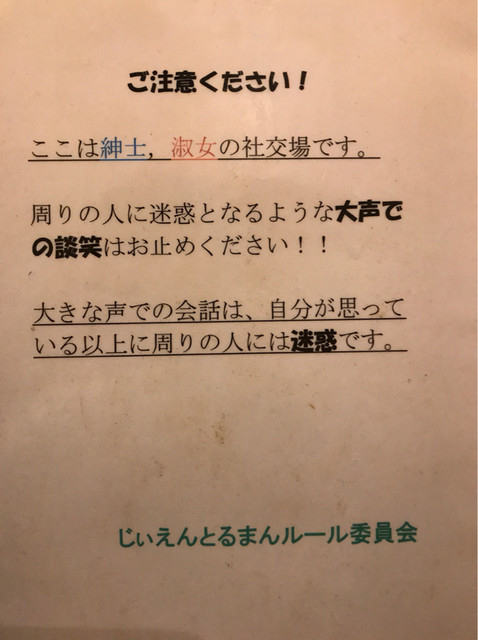 ご注意ください！
ここは紳士，淑女の社交場です。
周りの人に迷惑となるような大声で
の談笑はお止めください！！
大きな声での会話は、自分が思って
いる以上に周りの人には迷惑です。
じぃえんとるまんルール委員会